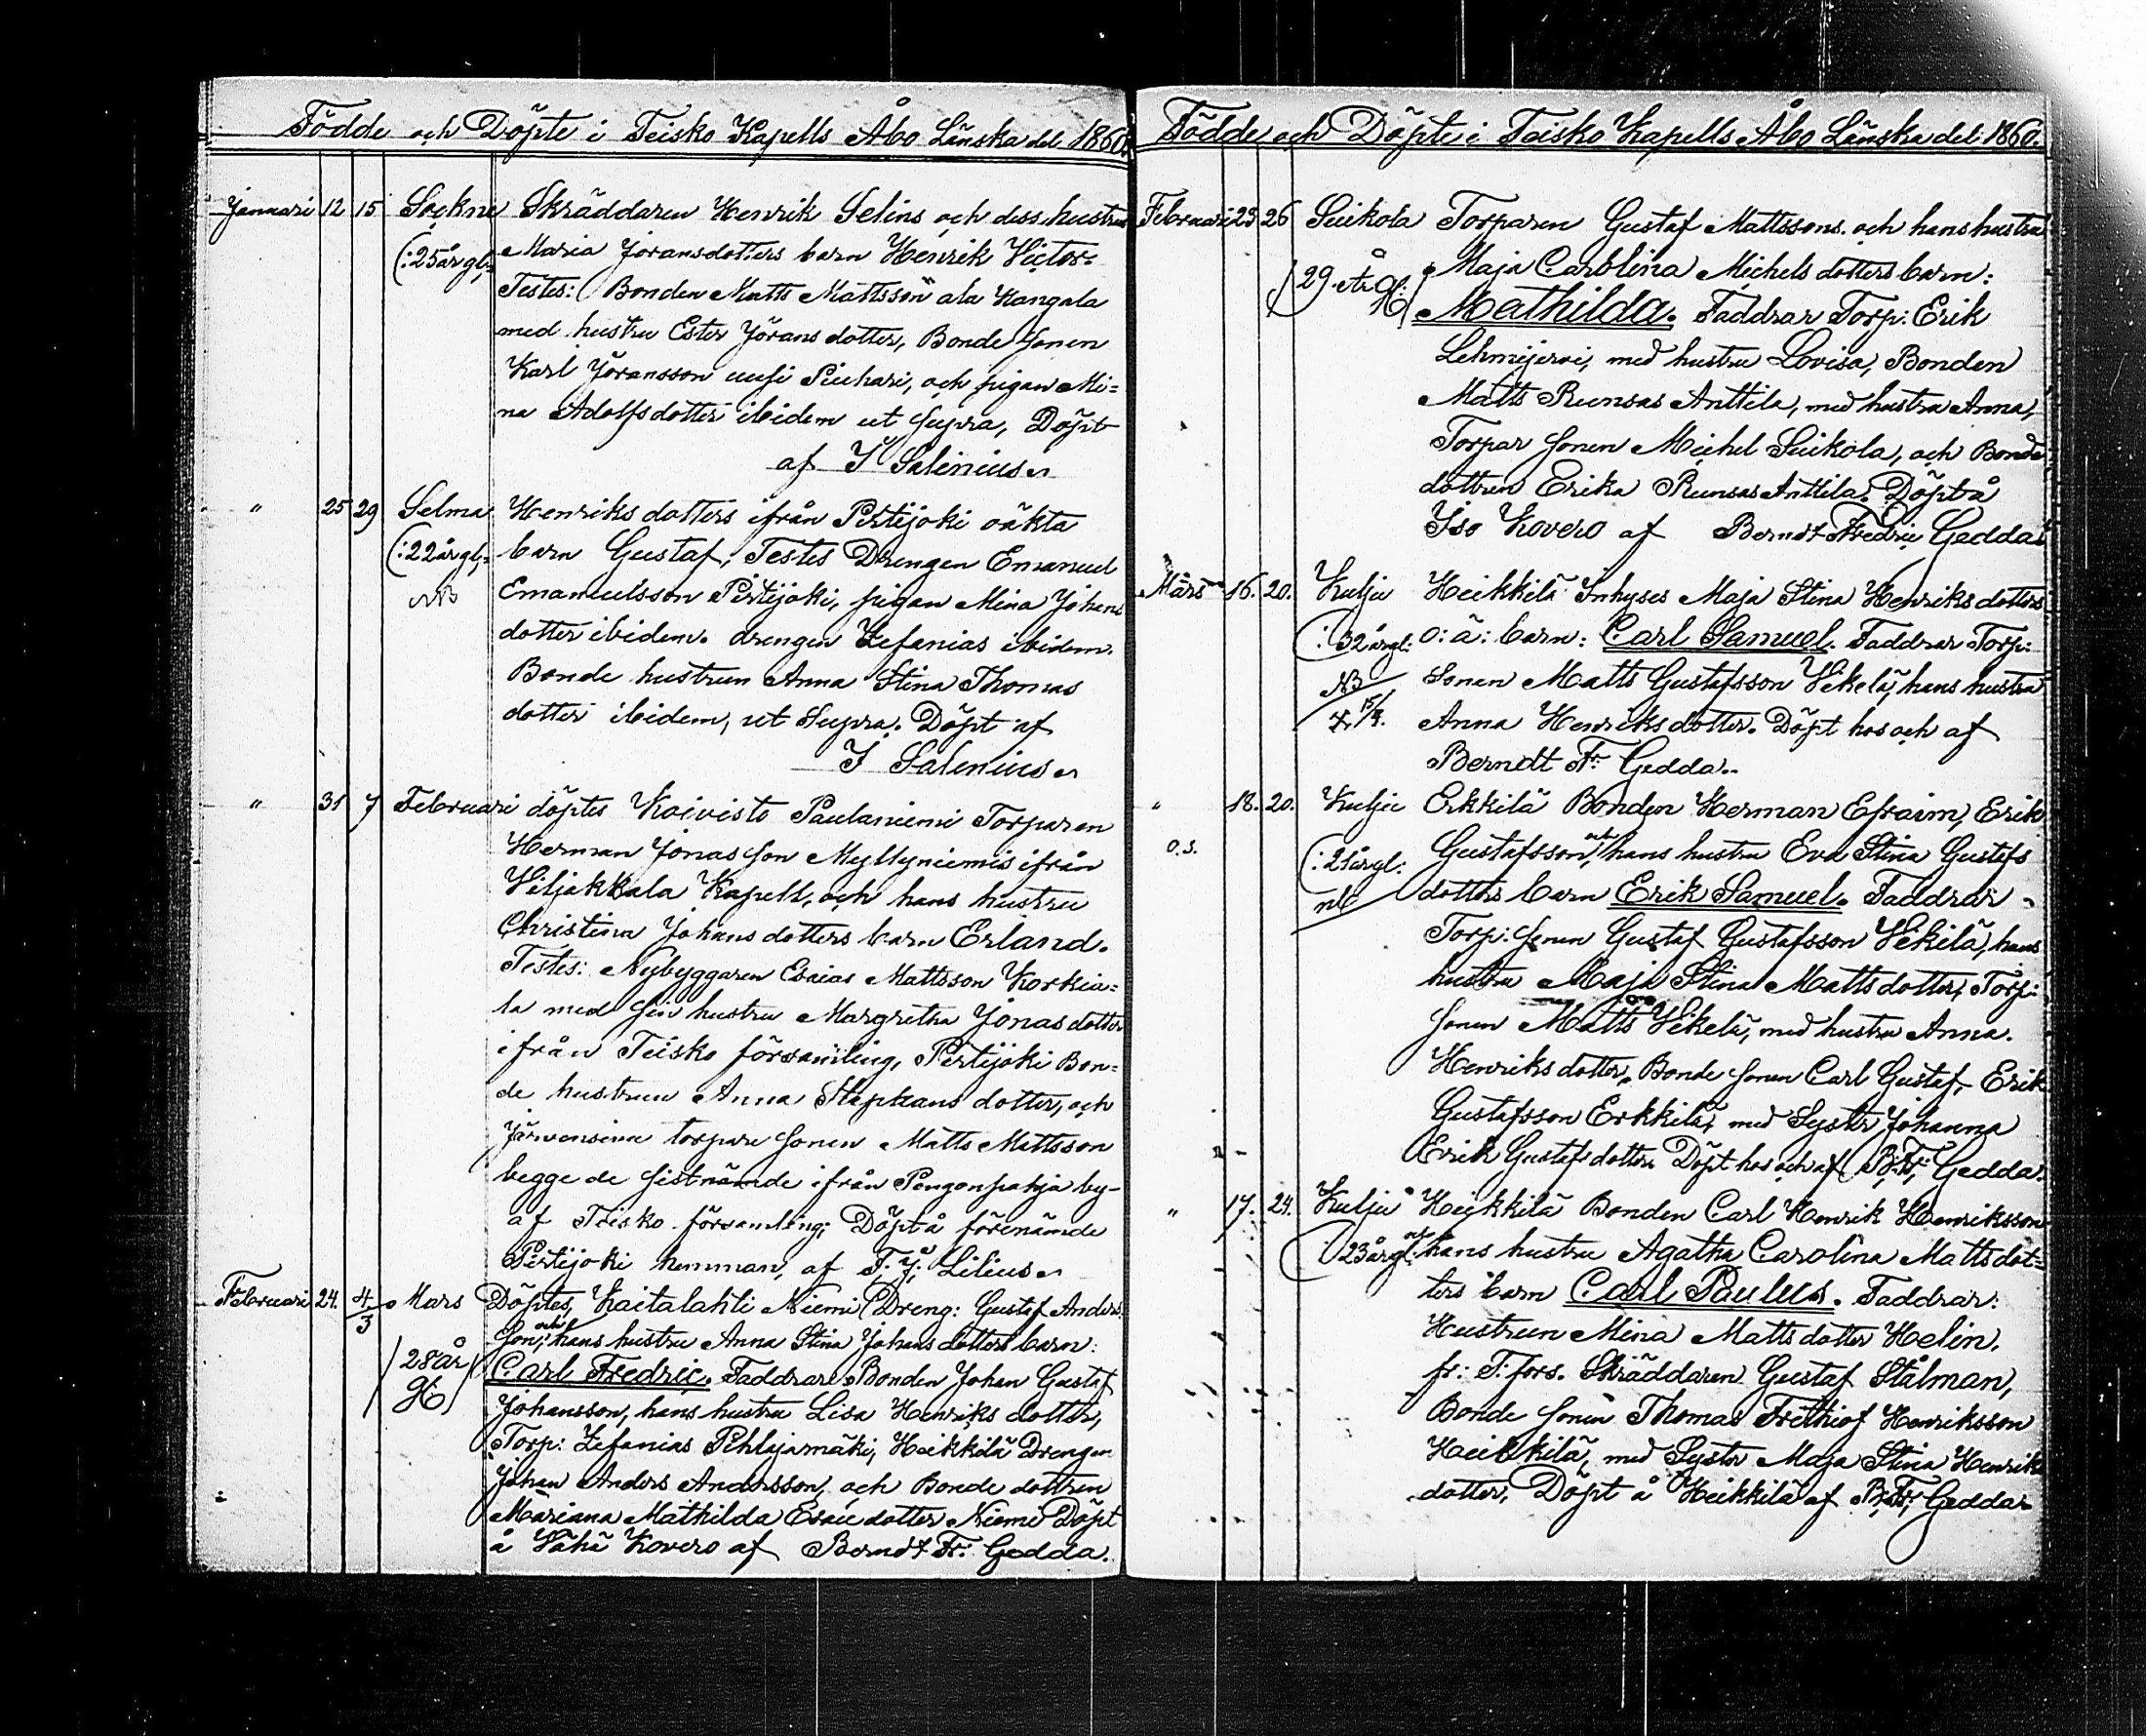 Födde och Döpte i Teisko Kapells Åbo Länska del 1860.
Januari 12 15 Sockne Skräddaren Henrik Selins och dess hustru
(:25 år gl:) Maria Joransdotters barn Henrik Victor.
Testes: Bonden Matts Mattsson ala Kangala
med hustru Ester Jörans dotter, Bonde Sonen
Karl Jöransson uusi Siuhari, och pigan Mi=
na Adolfsdotter ibidem ut Supra, Döpt
af J Salenius
" 25 29 Selma Henriks dotters ifrån Pirtijoki oäkta
(:22 år gl: barn Gustaf, Testes Drengen Emanuel
NB Emanuelsson Pirtijoki, pigan Mina Johans
dotter ibidem. drengen Zefanias ibidem.
Bonde hustrun Anna Stina Thomas
dotter ibidem, ut Supra. Döpt af
J Salenius
" 31 7 Februari döptes Koivisto Paulaniemi Torparen
Herman Jonas Son Myllyniemis ifrån
Viljakkala Kapell, och hans hustru
Christina Johans dotters barn Erland.
Testes: Nybyggaren Esaias Mattsson Korkia=
la med Sin hustru Margretha Jonas dotter
ifrån Teisko församling, Pirtijoki Bon=
de hustrun Anna Stephans dotter, och
Järvensivu torpare Sonen Matts Mattsson
begge de sistnämde ifrån Pengonpohja by
af Teisko församling; Döpt å förenämde
Pirtijoki hemman, af F. J. Lilius
Februari 24. 4/3 Mars Döptes, Kaitalahti Niemi Dreng: Gustaf Anders
Son, och hans hustru Anna Stina Johans dotters barn:
/28 år gl/ Carl Fredric. Faddrar Bonden Johan Gustaf
Johansson, hans hustru Lisa Henriks dotter,
Torp: Zefanias Pihlajamäki, Heikkilä Drengen
Johan Anders Andersson, och Bonde dottren
Mariana Mathilda Esaie dotter Niemi Döpt
å Vähä Kovero af Berndt Fr: Gedda.
Födde och Döpte i Teisko Kapells Åbo Länska del 1860.
Februari 23 26 Suikola Torparen Gustaf Mattssons och hans hustru
/29. År Gl:/ Maja Carolina Michels dotters barn:
Mathilda. Faddrar Torp: Erik
Lehmijervi, med hustru Lovisa, Bonden
Matts Runsas Anttila, med hustru Anna,
Torpar Sonen Michel Suikola, och Bonde
dottren Erika Runsas Anttila. Döpt å
Iso Kovero af Berndt Fredric Gedda
Mars 16. 20. Kulju Heikkilä Inhyses Maja Stina Henriks dotters
(:32 år gl: o: ä: barn: Carl Samuel. Faddrar Torp:
NB Sonen Matts Gustafsson Vekelä, hans hustru
Anna Henriks dotter. Döpt hos och af
Berndt Fr: Gedda.
" 18. 20. Kulju Erkkilä Bonden Herman Efraim, Erik
o.s. (:21 år gl: Gustafsson, och hans hustru Eva Stina Gustafs
nb dotters barn Erik Samuel. Faddrar
Torp: Sonen Gustaf Gustafsson Vekilä, hans
hustru Maja Stina Matts dotter, Torp:
Sonen Matts Vekelä, med hustru Anna
Henriks dotter, Bonde Sonen Carl Gustaf, Erik
Gustafsson Erkkilä, med Syster Johanna
Erik Gustafs dotter. Döpt hos och af B: Fr: Gedda.
" 17. 24. Kulju Heikkilä Bonden Carl Henrik Henriksson
(:23 år gl: och hans hustru Agatha Carolina Matts dot=
ters barn Carl Paulus. Faddrar:
Hustrun Mina Matts dotter Helin.
fr: T: fors. Skräddaren Gustaf Stålman,
Bonde Sonen Thomas Frithiof Henriksson
Heikkilä, med Syster Maja Stina Henriks
dotter, Döpt å Heikkilä af B: Fr: Gedda